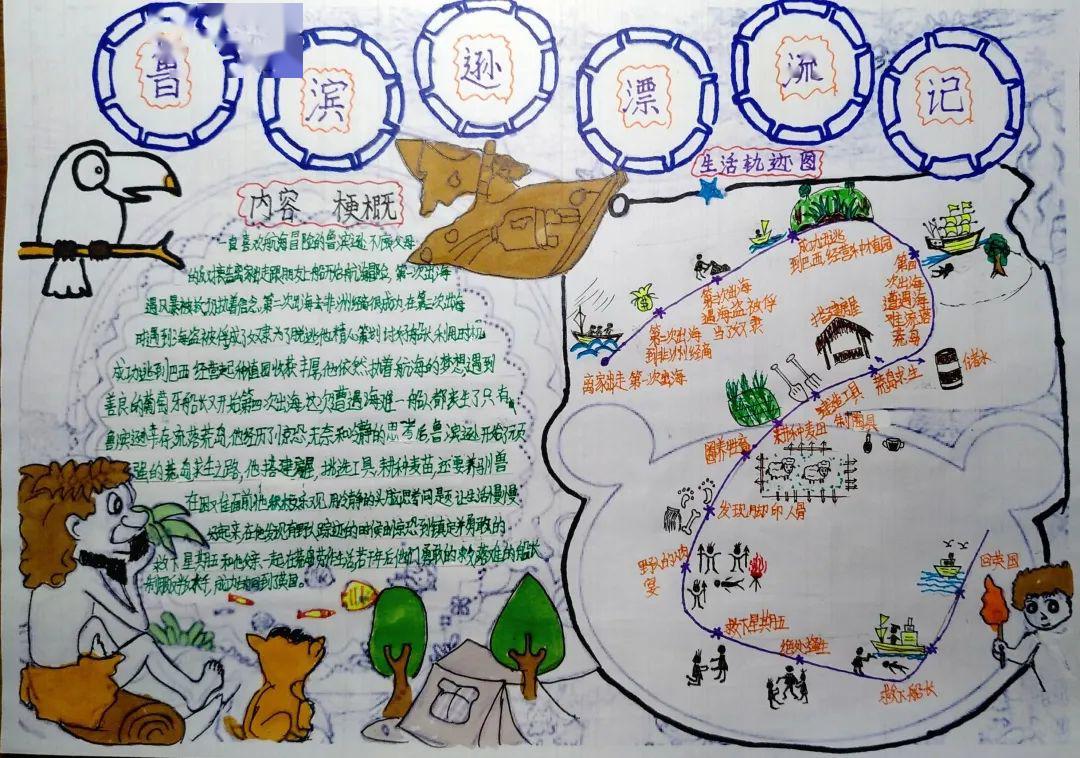 鲁滨逊漂流记
内容 梗概
一直喜欢航海冒险的鲁滨逊不顾父母
的反对离家出走跟朋友上船开始航海冒险。第一次出海
遇风暴被救仍执着信念。第二次出海去非洲经商很成功。在第三次出海
时遇到海盗被俘成了奴隶为了脱逃他精心策划讨好船长利用时机
成功逃到巴西经营起种植园收获丰厚。他依然执着航海的梦想,遇到
善良的葡萄牙船长又开始第四次出海。这次遭遇海难一船人都丧生了只有
鲁滨逊幸存流落荒岛。他经历了惊恐无奈和冷静的思考后,鲁滨逊开始顽
强的荒岛求生之路,他搭建,挑选工具,耕种麦苗,还要养驯兽
在困难面前他积极乐观,用冷静的头脑思考问是让生活慢慢
好起来在他发现有野人踪迹的时候由惊恐到镇定并勇敢的
救下星期五和他父亲一起在荒岛劳作生活若干年后他们勇敢的求助落难的船长
制服水手,成功地回到英国。
生活轨迹图
离家出走 第一次出海
第二次出海
到非洲经商
第三次出海
遇海盗被俘
当奴隶
成功逃
到巴西,经营种植园
第四
次出海
遭遇海
难流落
荒岛
荒岛求生
储水
搭建房屋
建造工具
制陶具
耕种麦田
圈养牲畜
发现脚印人骨
野人的肉
宴
救下星期五
绝处逢生
救下船长
回英国